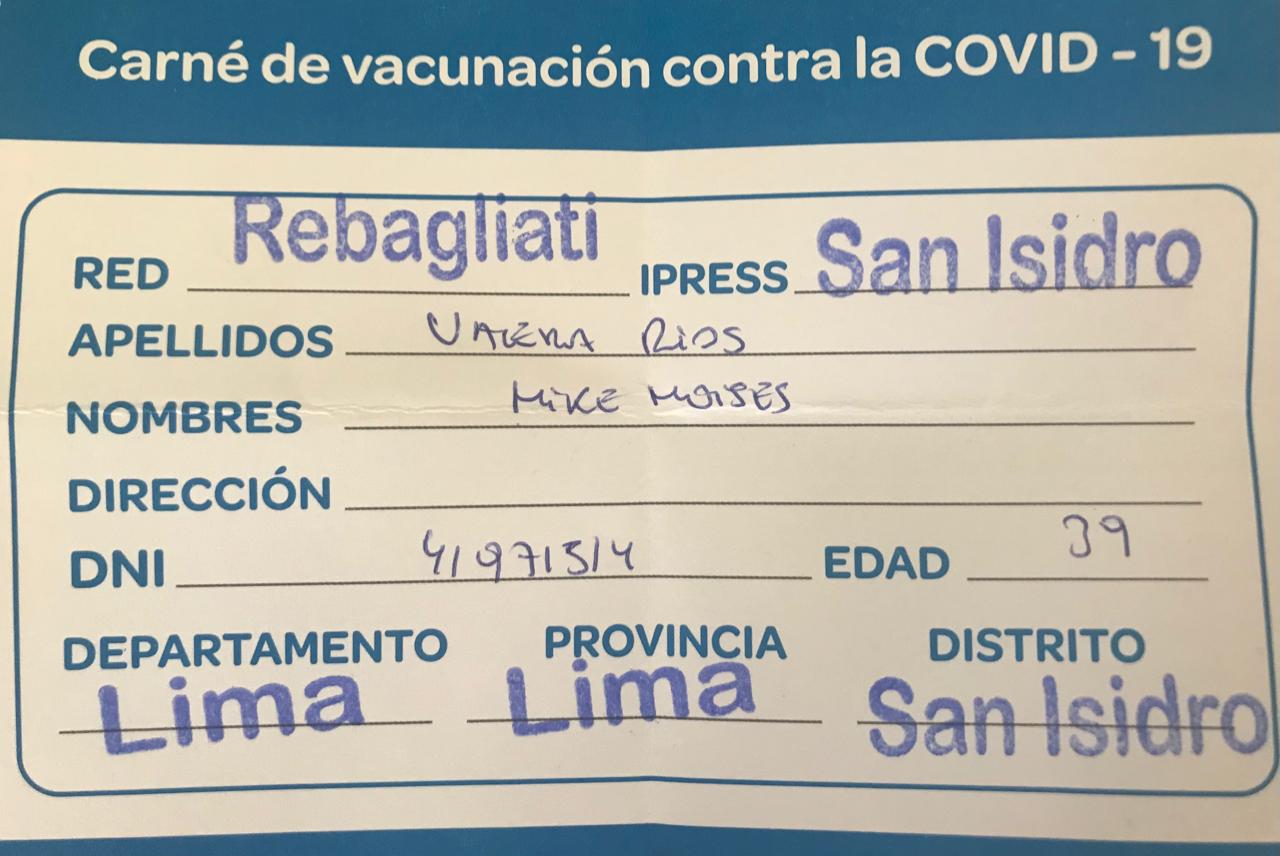 Carné de vacunación contra la COVID - 19
RED Rebagliati IPRESS San Isidro
APELLIDOS Rios
NOMBRES MIKE MOISES
DIRECCIÓN
DNI 41971514 EDAD 39
DEPARTAMENTO PROVINCIA DISTRITO
Lima Lima San Isidro